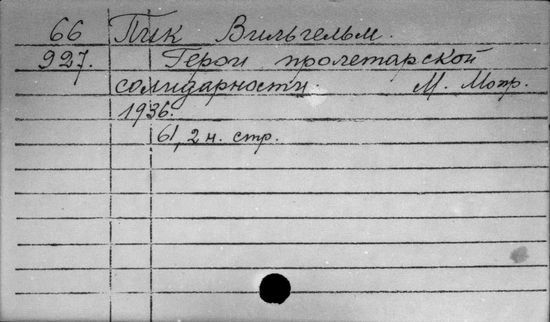 66 Пик Вильгельм.
927. Герои пролетарской
солидарности. М. Мопр.
1936.
61, 2 н. стр.